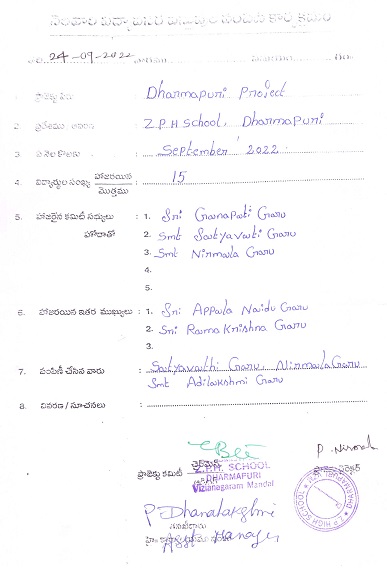 24-09-2022
1. ప్రాజెక్టు పేరు : Dharmapuri Project
2. : Z.P.H School, Dharmapuri
3. ఏ నెల కొరకు : September 2022
4. విద్యార్థుల సంఖ్య హాజరయిన / మొత్తము : 15
5. హాజరైన కమిటీ సభ్యులు : 1. Sri Ganapati Garu
హోదాతో 2. Smt Satyavati Garu
3. Smt Nirmala Garu
4.
5.
6. హాజరయిన ఇతర ముఖ్యులు : 1. Sri Appala Naidu Garu
2. Sri Rama Krishna Garu
3.
7. పంపిణీ చేసిన వారు : Satyavathi Garu, Nirmala Garu
Smt Adilakshmi Garu
8. వివరణ / సూచనలు :
ప్రాజెక్టు కమిటీ చైర్మన్
Z.P.H. SCHOOL
DHARMAPURI
Vizianagaram Mandal
P. Dhanalakshmi